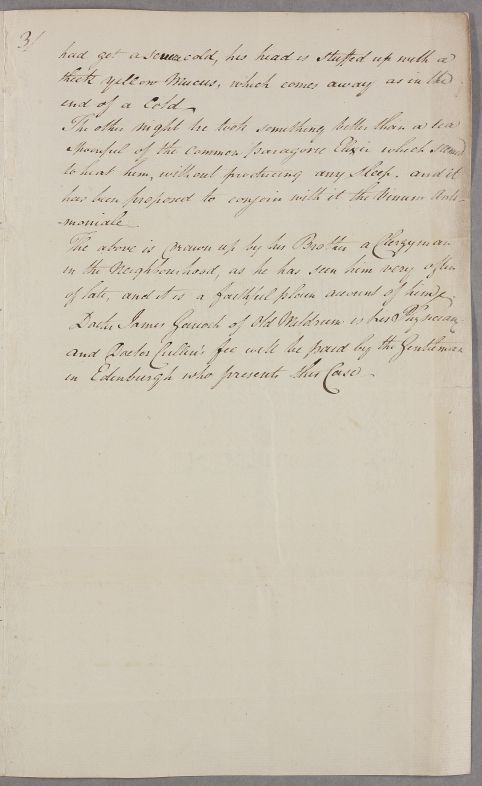 3/
had got a severe cold, his head is stuffed up with a
thick yellow Mucus, which comes away as in the
end of a Cold.
The other night he took something better than a tea
spoonful of the common paragoric Elixir which seemed
to heat him, without producing any sleep. and it
has been proposed to conjoin with it the Vinum Anti-
-moniale
The above is drawn up by his Brother a Clergyman
in the Neighbourhood, as he has seen him very often
of late, and it is a faithful plain account of him.
Doctor James of Old Meldrum is his Physician,
and Doctor Cullen's fee will be paid by the Gentleman
in Edinburgh who presents this Case.